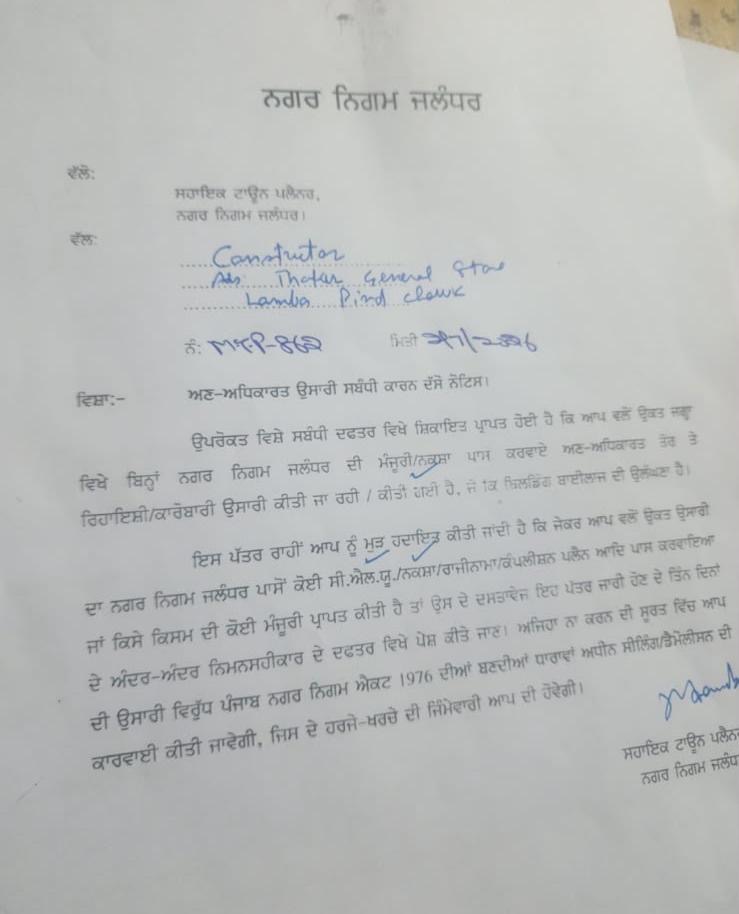 ਨਗਰ ਨਿਗਮ ਜਲੰਧਰ
ਵੱਲੋ:
ਸਹਾਇਕ ਟਾਊਨ ਪਲੈਨਰ,
ਨਗਰ ਨਿਗਮ ਜਲੰਧਰ।
ਵੱਲ:
General
Lamba Pind Chowk
ਨੰ: MTP-862 ਮਿਤੀ
ਵਿਸ਼ਾ:- ਅਣ-ਅਧਿਕਾਰਤ ਉਸਾਰੀ ਸਬੰਧੀ ਕਾਰਨ ਦੱਸੋ ਨੋਟਿਸ।
ਉਪਰੋਕਤ ਵਿਸ਼ੇ ਸਬੰਧੀ ਦਫਤਰ ਵਿਖੇ ਸ਼ਿਕਾਇਤ ਪ੍ਰਾਪਤ ਹੋਈ ਹੈ ਕਿ ਆਪ ਵਲੋਂ ਉਕਤ ਜਗ੍ਹਾ
ਵਿਖੇ ਬਿਨ੍ਹਾਂ ਨਗਰ ਨਿਗਮ ਜਲੰਧਰ ਦੀ ਮੰਜੂਰੀ/ਨਕਸ਼ਾ ਪਾਸ ਕਰਵਾਏ ਅਣ-ਅਧਿਕਾਰਤ ਤੋਰ ਤੇ
ਰਿਹਾਇਸ਼ੀ/ਕਾਰੋਬਾਰੀ ਉਸਾਰੀ ਕੀਤੀ ਜਾ ਰਹੀ / ਕੀਤੀ ਗਈ ਹੈ, ਜੋ ਕਿ ਬਿਲਡਿੰਗ ਬਾਈਲਾਜ ਦੀ ਉਲੰਘਣਾ ਹੈ।
ਇਸ ਪੱਤਰ ਰਾਹੀਂ ਆਪ ਨੂੰ ਮੁੜ ਹਦਾਇਤ ਕੀਤੀ ਜਾਂਦੀ ਹੈ ਕਿ ਜੇਕਰ ਆਪ ਵਲੋਂ ਉਕਤ ਉਸਾਰੀ
ਦਾ ਨਗਰ ਨਿਗਮ ਜਲੰਧਰ ਪਾਸੋਂ ਕੋਈ ਸੀ.ਐਲ.ਯੂ./ਨਕਸ਼ਾ/ਰਾਜੀਨਾਮਾ/ਕੰਪਲੀਸ਼ਨ ਪਲੈਨ ਆਦਿ ਪਾਸ ਕਰਵਾਇਆ
ਜਾਂ ਕਿਸੇ ਕਿਸਮ ਦੀ ਕੋਈ ਮੰਜੂਰੀ ਪ੍ਰਾਪਤ ਕੀਤੀ ਹੈ ਤਾਂ ਉਸ ਦੇ ਦਸਤਾਵੇਜ ਇਹ ਪੱਤਰ ਜਾਰੀ ਹੋਣ ਦੇ ਤਿੰਨ ਦਿਨਾਂ
ਦੇ ਅੰਦਰ-ਅੰਦਰ ਨਿਮਨਸਹੀਕਾਰ ਦੇ ਦਫਤਰ ਵਿਖੇ ਪੇਸ਼ ਕੀਤੇ ਜਾਣ। ਅਜਿਹਾ ਨਾ ਕਰਨ ਦੀ ਸੂਰਤ ਵਿੱਚ ਆਪ
ਦੀ ਉਸਾਰੀ ਵਿਰੁੱਧ ਪੰਜਾਬ ਨਗਰ ਨਿਗਮ ਐਕਟ 1976 ਦੀਆਂ ਬਣਦੀਆਂ ਧਾਰਾਵਾਂ ਅਧੀਨ ਸੀਲਿੰਗ/ਡੈਮੋਲੀਸਨ ਦੀ
ਕਾਰਵਾਈ ਕੀਤੀ ਜਾਵੇਗੀ, ਜਿਸ ਦੇ ਹਰਜੇ-ਖਰਚੇ ਦੀ ਜਿੰਮੇਵਾਰੀ ਆਪ ਦੀ ਹੋਵੇਗੀ।
ਸਹਾਇਕ ਟਾਊਨ ਪਲੈਨਰ
ਨਗਰ ਨਿਗਮ ਜਲੰਧ